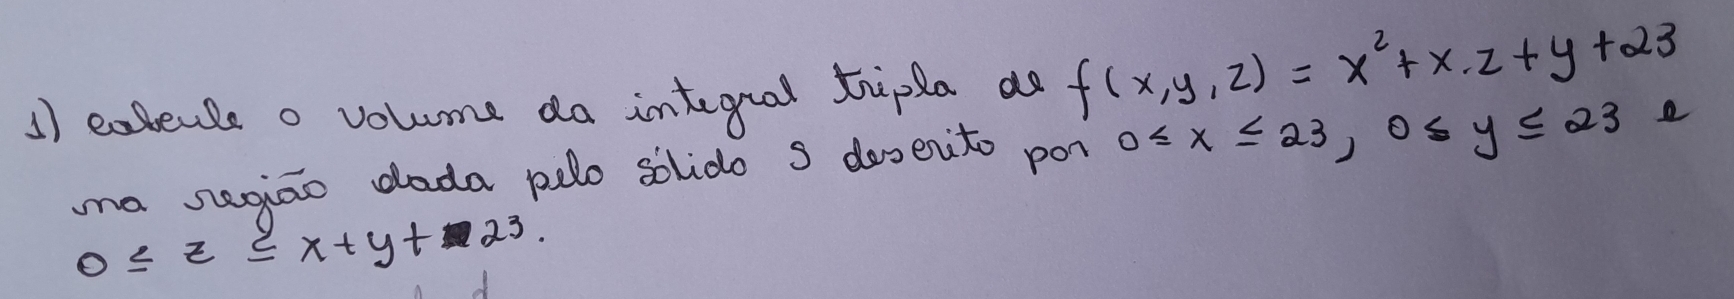 1) calcule o volume da integral tripla de f(x,y,z) = x²+x.z+y+23
na região dada pelo sólido S descrito por 0≤x≤23, 0≤y≤23 e
0≤z≤x+y+23.